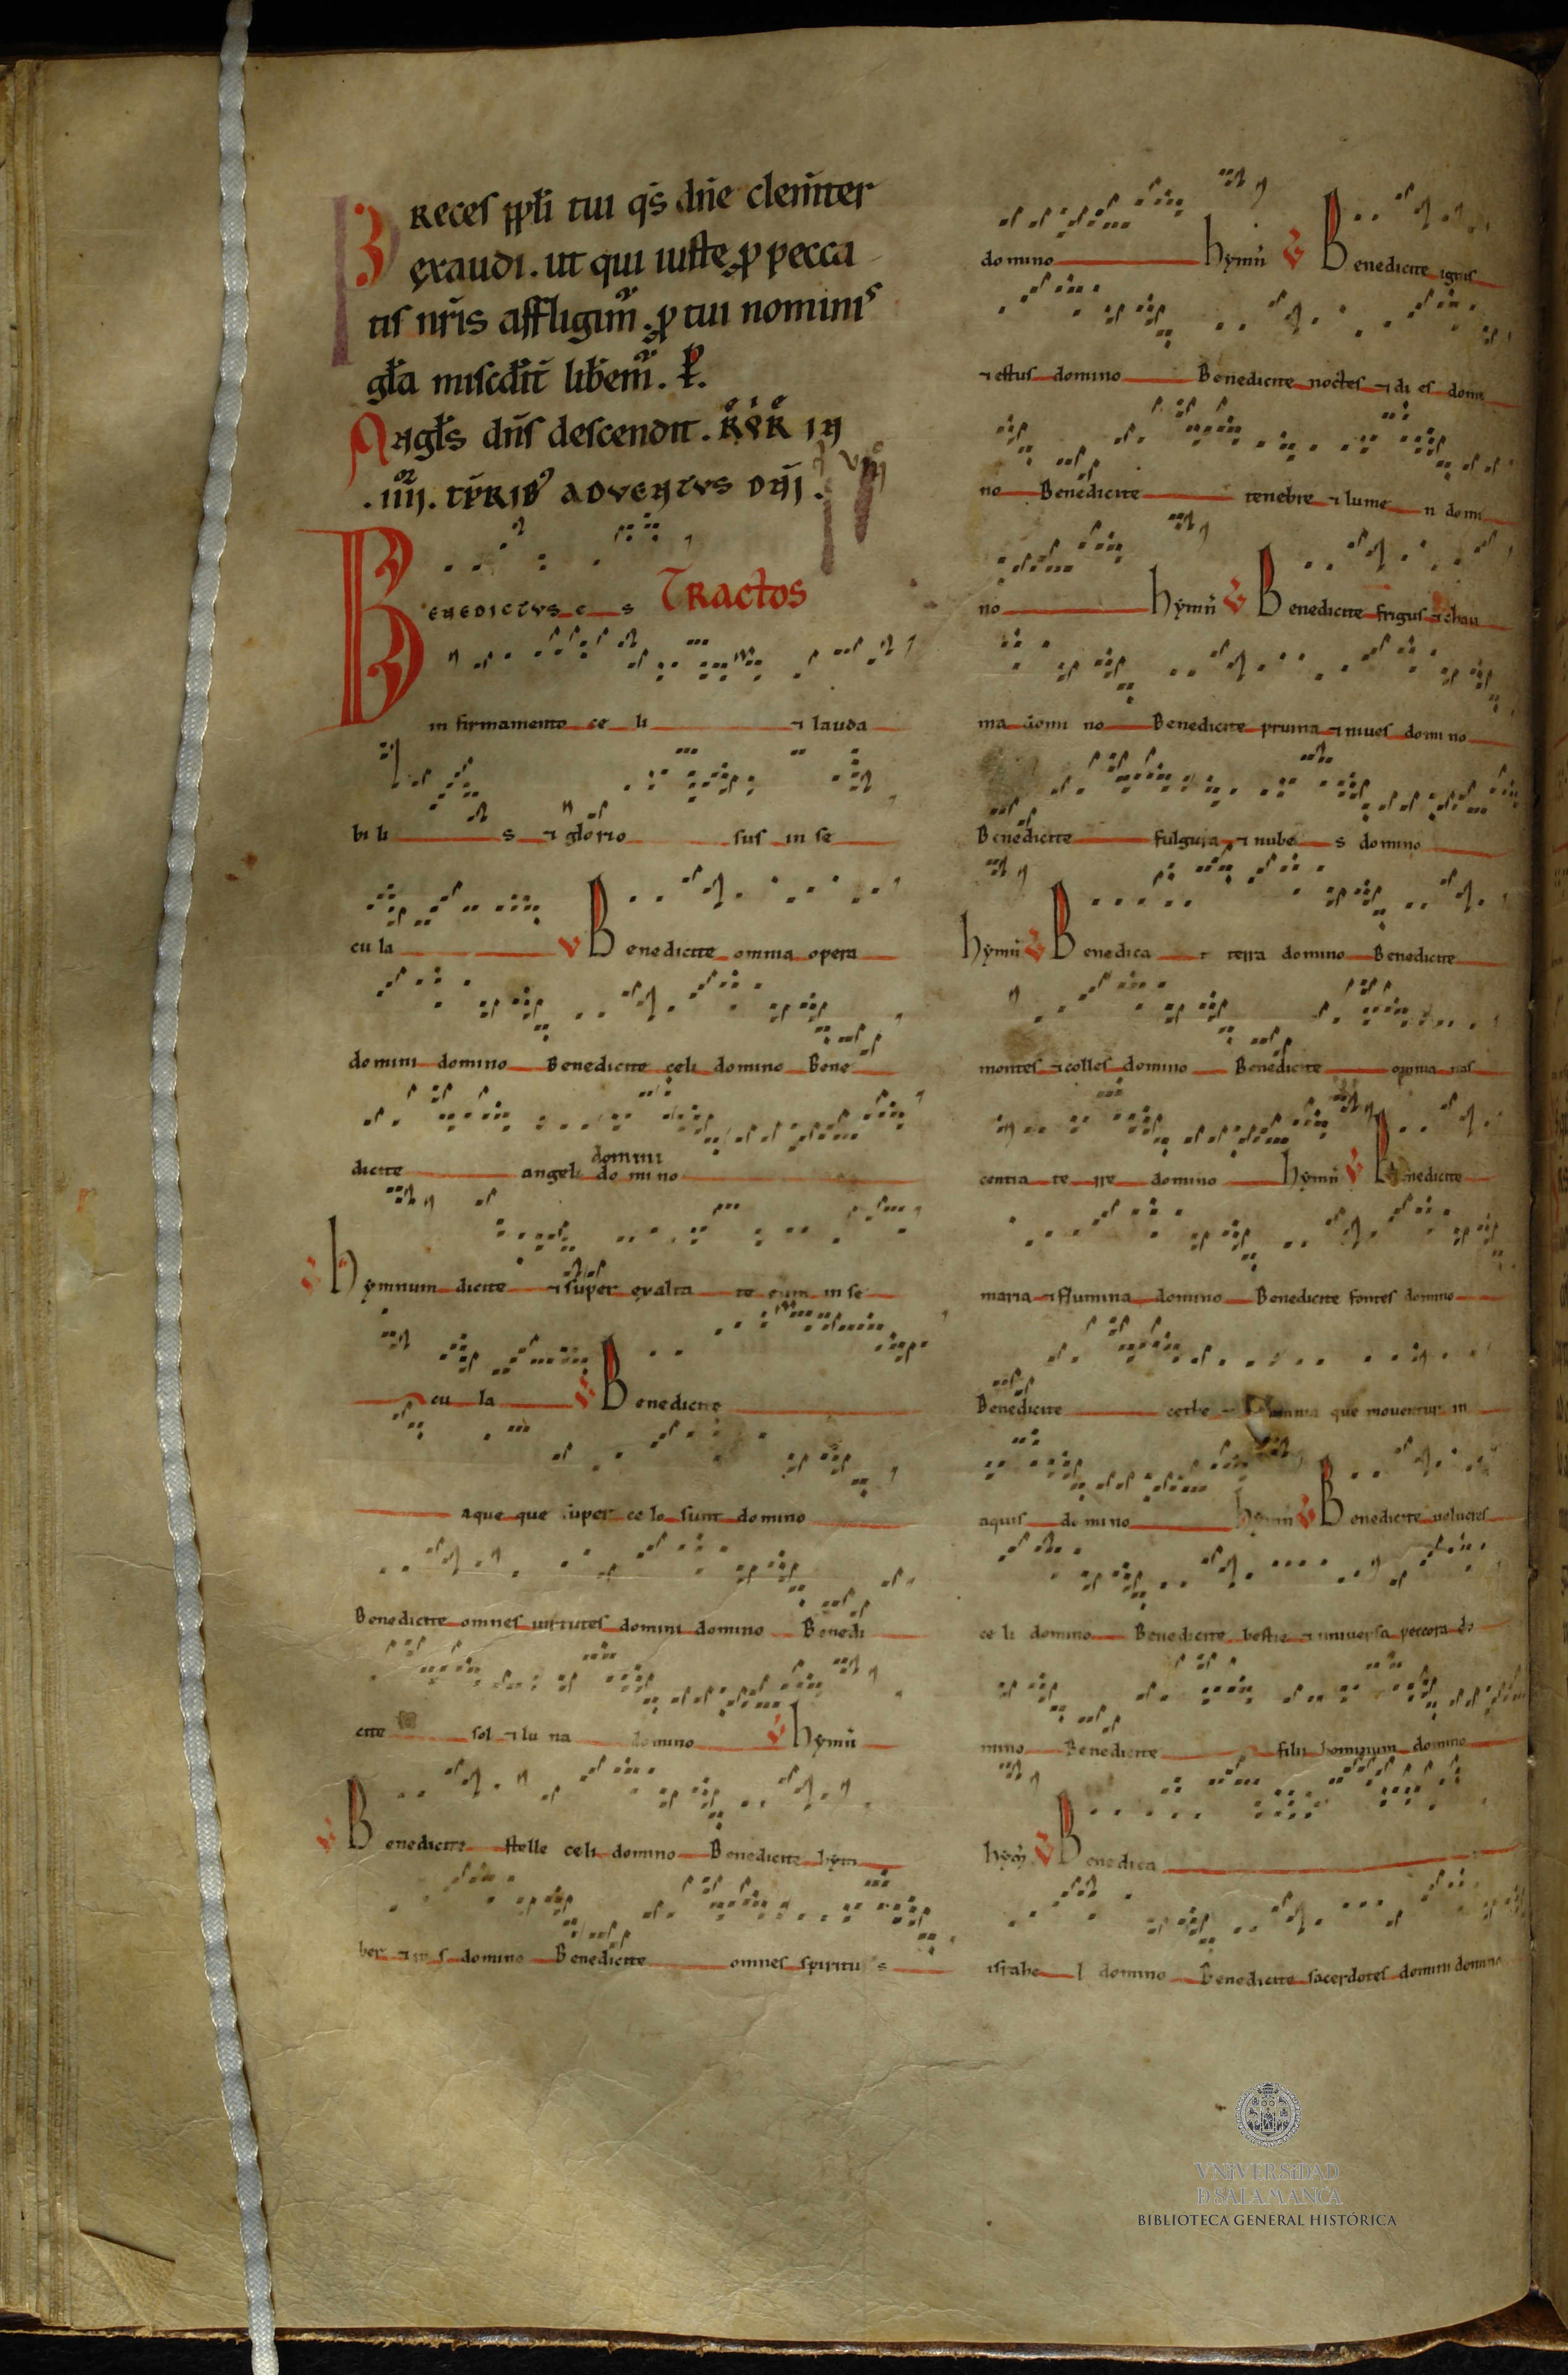 Preces ppłi tui qs̄ dn̄e clem̄ter
exaudi. ut qui iuste ꝓ pecca
tis nr̄is affligim̄. ꝓ tui nominis
gła
Angłs dn̄s descendit.
.IIIJ. ADVENTUS DNJ.
Tractos
BENEDICTUS e s
in firmamento ce li ⁊ lauda
bi li s ⁊ glorio sus in se
cu la V Benedicite omnia opera
domini domino Benedicite celi domino Bene
domini
dicite angeli do mi no
Hymnum dicite ⁊ super exalta te eum in se
cu la V Benedicite
aque que super ce lo sunt domino
Benedicite omnes uirtutes domini domino Benedi
cite sol ⁊ lu na domino V hymn̄
V Benedicite stelle celi domino Benedicite hym
ber ⁊ ro s domino Benedicite omnes spiritu s
domino hymn̄ V Benedicite ignis
⁊ estus domino Benedicite noctes ⁊ di es domi
no Benedicite tenebre ⁊ lume n domi
no hymn̄ V Benedicite frigus ⁊ chau
ma domi no Benedicite pruina ⁊ niues domi no
Benedicite fulgura ⁊ nube s domino
hymn̄ V Benedica t terra domino Benedicite
montes ⁊ colles domino Benedicite omnia nas
centia te rre domino hymn̄ V Benedicite
maria ⁊ flumina domino Benedicite fontes domino
Benedicite cethe ⁊ omnia que mouentur in
aquis do mi no hymn̄ V Benedicite uolucres
ce li domino Benedicite bestie ⁊ uniuersa peccora do
mino Benedicite filii hominum domino
hym̄ V Benedica
israhe l domino Benedicite sacerdotes domini domino
VNIVERSIDAD
D SALAMANCA
BIBLIOTECA GENERAL HISTÓRICA